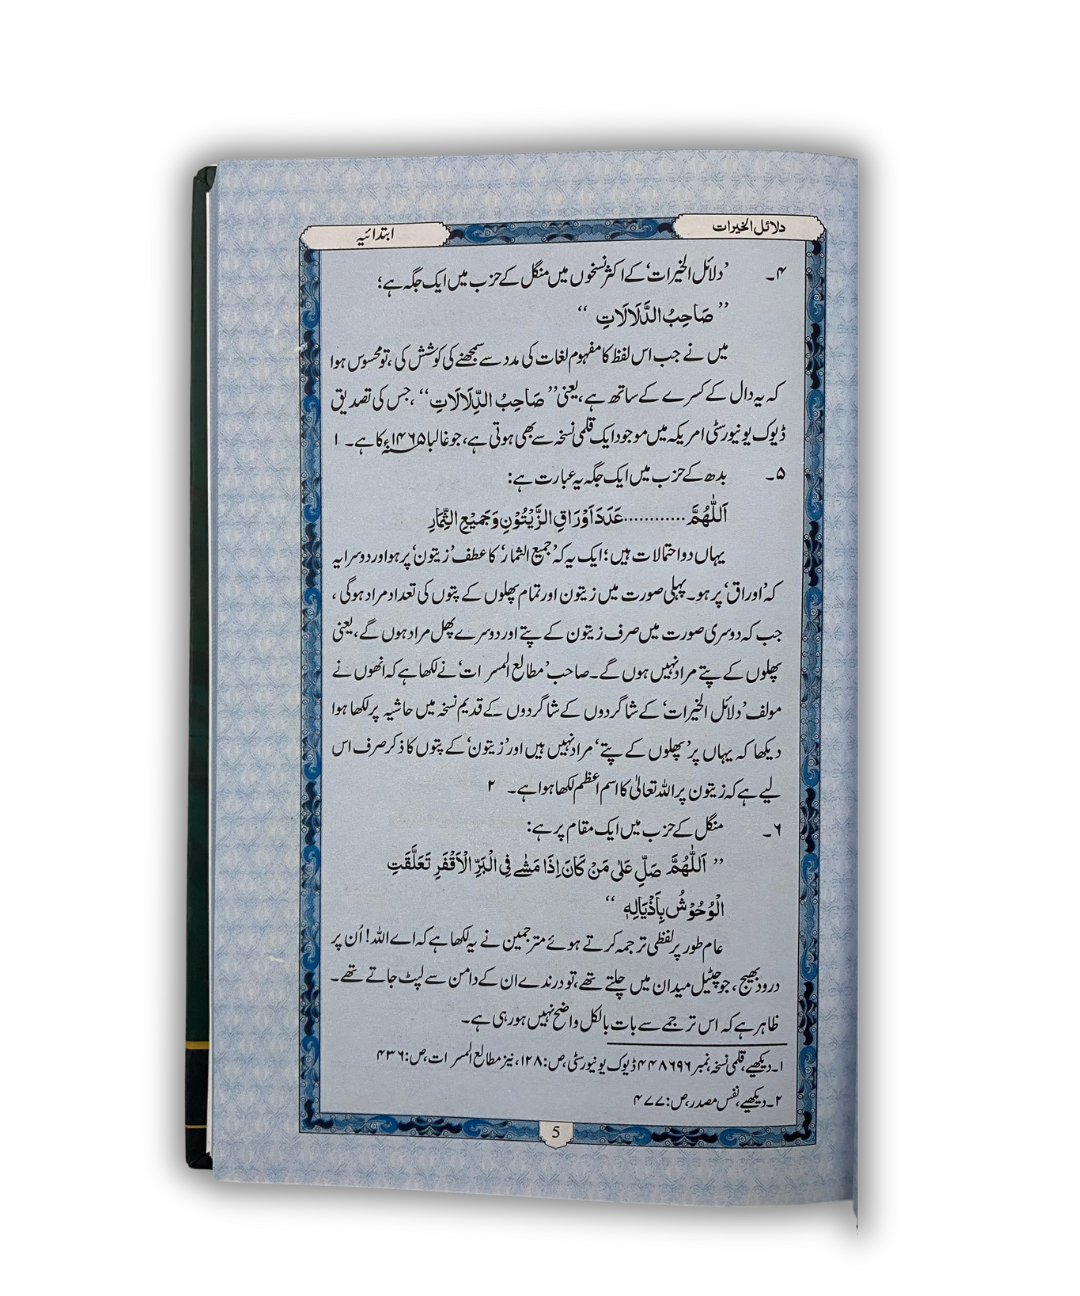 دلائل الخیرات
ابتدائیہ
۴۔ ’دلائل الخیرات‘ کے اکثر نسخوں میں منگل کے حزب میں ایک جگہ ہے؛
’’ صَاحِبُ الدَّلَالَاتِ ‘‘
میں نے جب اس لفظ کا مفہوم لغات کی مدد سے سمجھنے کی کوشش کی، تو محسوس ہوا
کہ یہ دال کے کسرے کے ساتھ ہے، یعنی ’’ صَاحِبُ الدِّلَالَاتِ ‘‘، جس کی تصدیق
ڈیوک یونیورسٹی امریکہ میں موجود ایک قلمی نسخہ سے بھی ہوتی ہے، جو غالبا ۱۴۶۵ء کا ہے۔ ۱
۵۔ بدھ کے حزب میں ایک جگہ یہ عبارت ہے:
اَللّٰهُمَّ............عَدَدَ اَوْرَاقِ الزَّیْتُوْنِ وَجَمِیْعِ الثِّمَارِ
یہاں دو احتمالات ہیں؛ ایک یہ کہ ’جمیع الثمار‘ کا عطف ’زیتون‘ پر ہو اور دوسرا یہ
کہ ’اوراق‘ پر ہو۔ پہلی صورت میں زیتون اور تمام پھلوں کے پتوں کی تعداد مراد ہوگی،
جب کہ دوسری صورت میں صرف زیتون کے پتے اور دوسرے پھل مراد ہوں گے، یعنی
پھلوں کے پتے مراد نہیں ہوں گے۔ صاحب ’مطالع المسرات‘ نے لکھا ہے کہ انھوں نے
مولف ’دلائل الخیرات‘ کے شاگردوں کے شاگردوں کے قدیم نسخہ میں حاشیہ پر لکھا ہوا
دیکھا کہ یہاں پر ’پھلوں کے پتے‘ مراد نہیں ہیں اور ’زیتون‘ کے پتوں کا ذکر صرف اس
لیے ہے کہ زیتون پر اللہ تعالیٰ کا اسم اعظم لکھا ہوا ہے۔ ۲
۶۔ منگل کے حزب میں ایک مقام پر ہے:
’’ اَللّٰهُمَّ صَلِّ عَلٰی مَنْ کَانَ اِذَا مَشٰے فِی الْبَرِّ الْاَقْفَرِ تَعَلَّقَتِ
الْوُحُوْشُ بِاَذْیَالِهٖ ‘‘
عام طور پر لفظی ترجمہ کرتے ہوئے مترجمین نے یہ لکھا ہے کہ اے اللہ! اُن پر
درود بھیج، جو چٹیل میدان میں چلتے تھے، تو درندے ان کے دامن سے لپٹ جاتے تھے۔
ظاہر ہے کہ اس ترجمے سے بات بالکل واضح نہیں ہو رہی ہے۔
۱۔ دیکھیے، قلمی نسخہ نمبر ۴۴۸۶۹۶ ڈیوک یونیورسٹی، ص: ۱۲۸، نیز مطالع المسرات، ص: ۴۳۶
۲۔ دیکھیے، نفس مصدر، ص: ۴۷۷
5